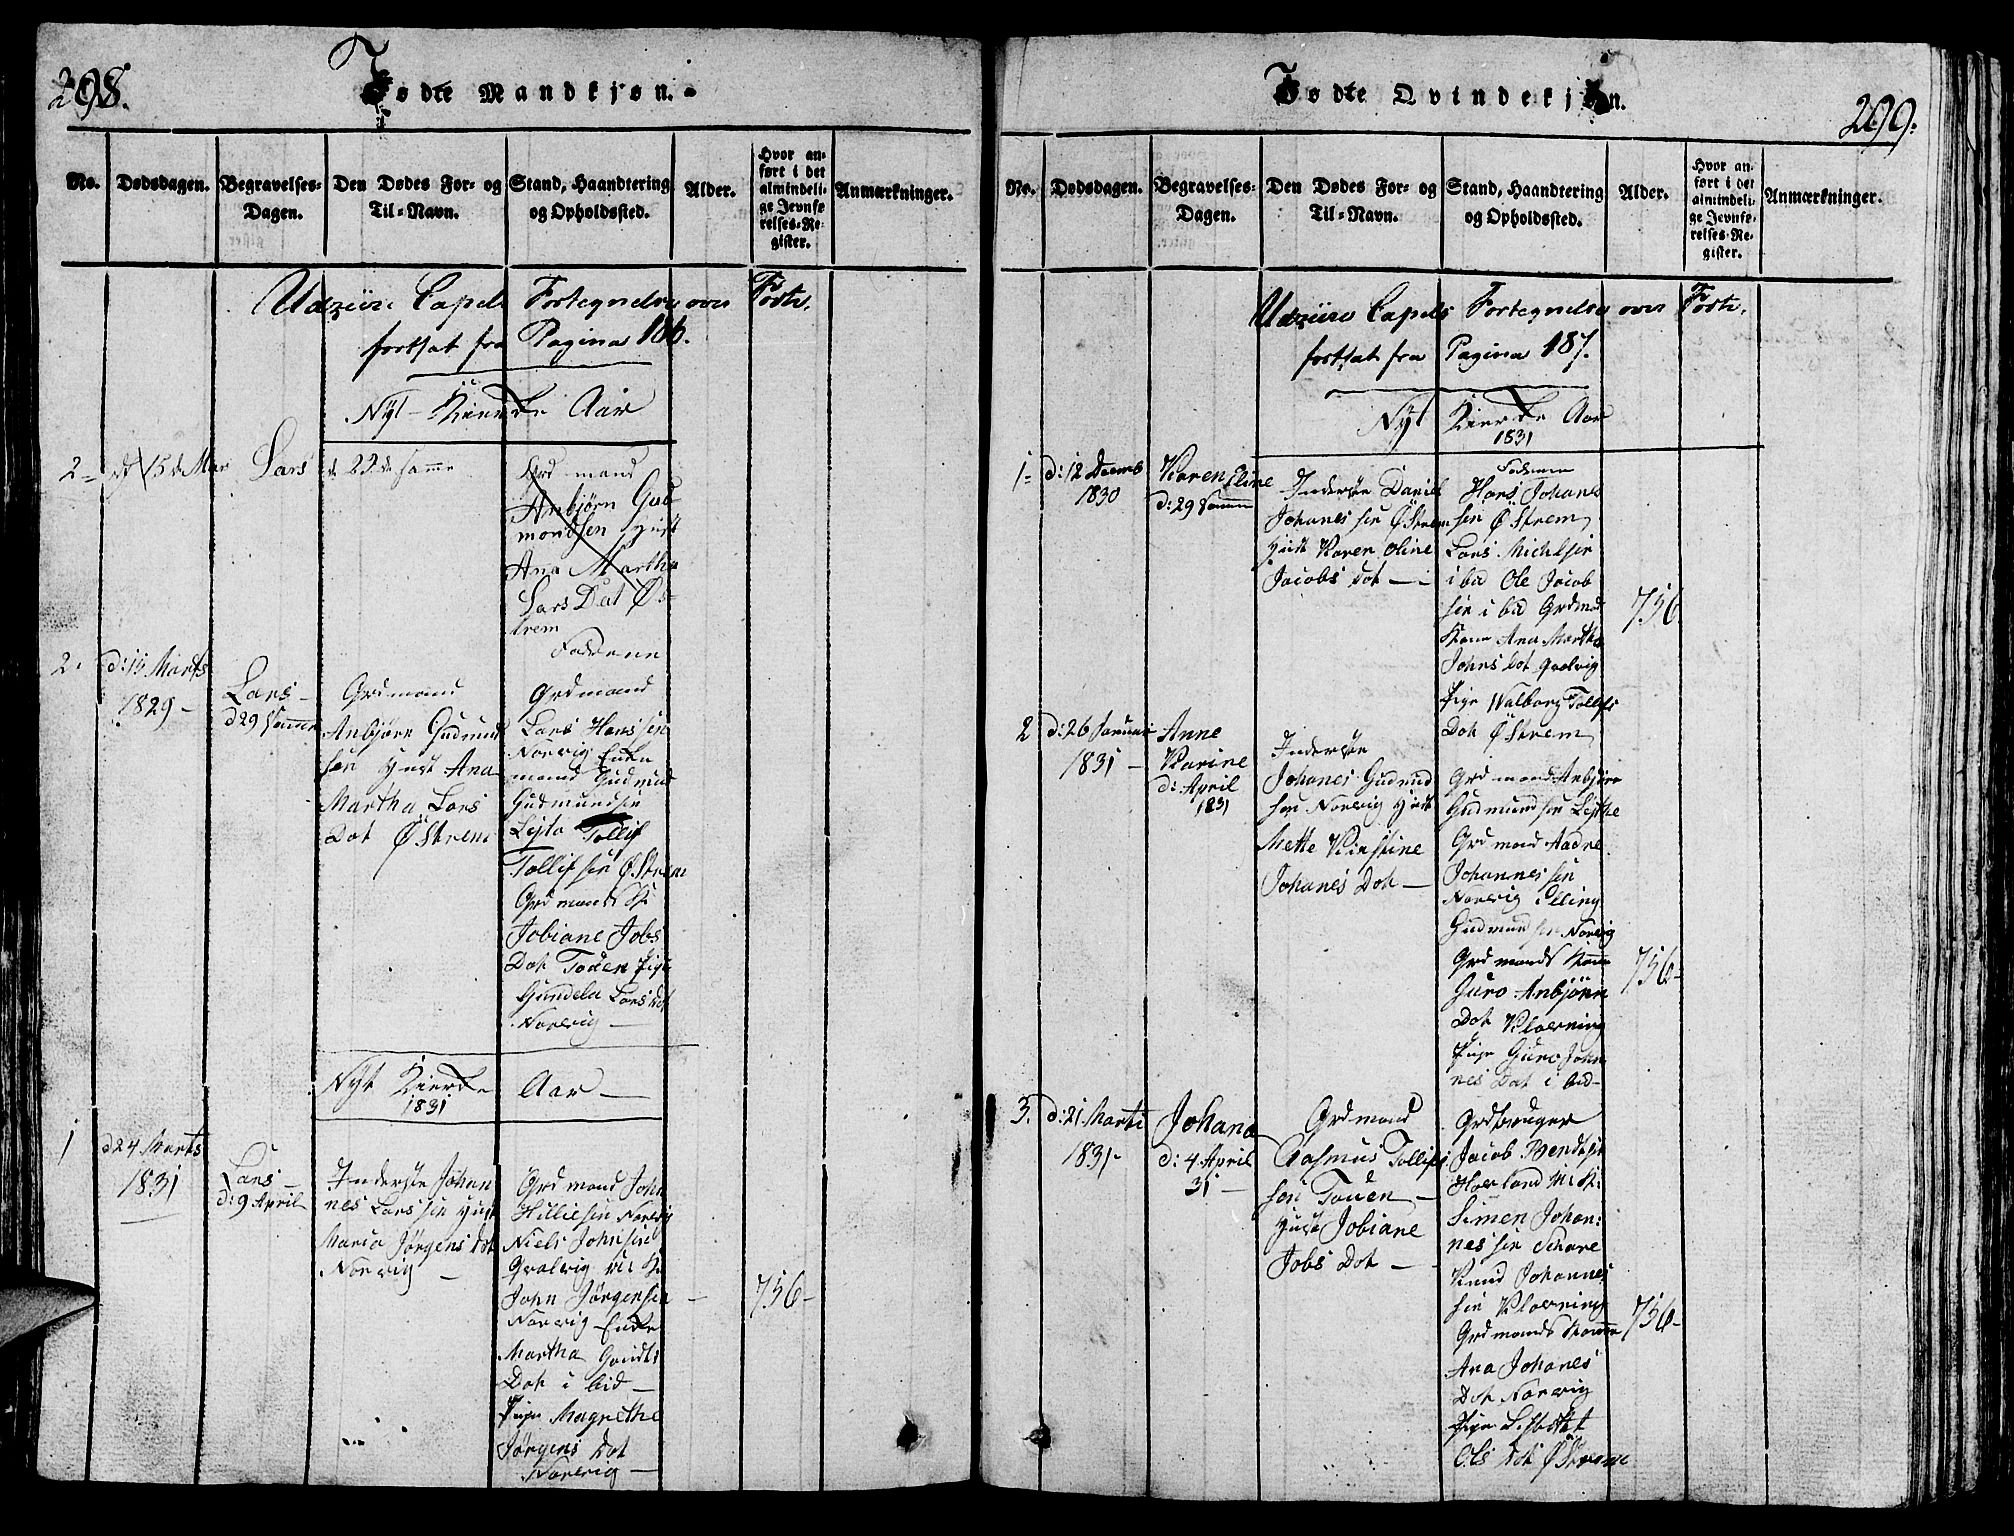 298.
Fødte Mandkjøn.
No.
Dødsdagen.
Begravelses-
Dagen.
Den Dødes For- og
Til-Navn.
Stand, Haandtering
og Opholdssted.
Alder.
Hvor an-
ført i det
almindeli-
ge Jevnfø
relses-Re-
gister.
Anmærkninger.
Udzüire Capels Fortegnelse over Födte.
fortsat fra Pagina 186.
Nÿt Kierke Aar
2 15 de Mar Lars d. 22 de samme
Grd mand
Anbjørn Gud
mondsen
Ana Martha
Lars Dat Øs-
trem
2. d: 15 Marts
1829 -
Lars -
d 29 Samme
Grdmand
Anbjørn Gudmund
sen Hust Ana
Martha Lars
Dot Østrem
Fadderne
Grdmand
Lars Hanssen
Norvig Enke
mand Gudmund
Gudmundsen
Tollif
Tollifsen Østrem
Grd mands K.
Jobiane Jobs
Dot Touen Pige
Gundela Lars Dot
Norvig -
Nÿt Kierke Aar
1831
1
d 24 Marts
1831
Lars -
d: 9 April
Inderste Johan
nes Larssen Hust
Maria Jørgens Dot
Norvig -
Grd mand John
Hilliesen Norvig
Niels Johnsen
Qvalvig
John Jørgensen
Norvig Enke
Martha
Dot i bid -
Pige Magrethe
Jørgens Dot
Norvig -
756 -
299.
Fødte Qvindekjøn.
No.
Dødsdagen.
Begravelses-
Dagen.
Den Dødes For- og
Til-Navn.
Stand, Haandtering
og Opholdssted.
Alder.
Hvor an-
ført i det
almindeli-
ge Jevnfø-
relses-Re-
gister.
Anmærkninger.
Udzüire Capels Fortegnelse over Födte.
fortsat fra Pagina 187.
Nÿt Kierke Aar
1831
1 -
d: 12 Decemb
1830
Karen Eline
d: 29 Samme
Inderste Daniel
Johanes sen Østrem
Hust Karen Oline
Jacobs Dot -
Fadderne
Hans Johanes
sen Østrem
Lars Michelsen
i bid Ole Jacob
sen i bid Grdmds
Kone Ana Martha
Johns Dot Qvalvig
Pige Walborg Tollifs
Dot Østrem
756
2
d: 26 Januari
1831 -
Anne
Karine
d: April
1831
Inderste
Johanes Gudmund
sen Norvig Hust
Mette Kirstine
Johanes Dot -
Grd mand Anbjørn
Gudmundsen
Grd mand Aadne
Johannes sen
Norvig Elling
Gudmundsen Norvig
Grd mands Kone
Guro Anbjørn
Dot Klovning
Pige Guro Johan
nes Dot i bid -
756 -
3.
d: 21 Marti
1831 -
Johana
d: 4 April
31 -
Grdmand
Rasmus Tollif
sen Touen -
Hust Jobiane
Jobs Dot -
Grdbruger
Jacob Bendtsen
Hovland
Simen Johan:
nes sen Schare
Knud Johannes
sen Kloevning
Grd mands Kone
Ana Johanes
Dot Norvig
Pige Lisbethe
Ols Dot Østrem
756 -